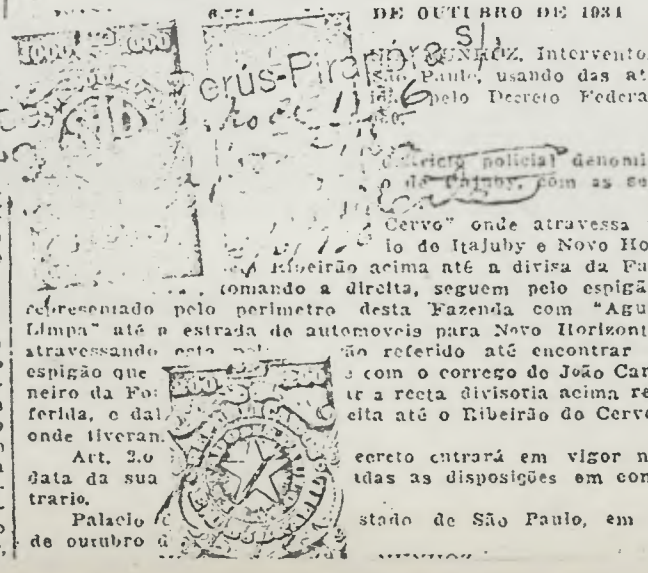 6.774 DE OUTUBRO DE 1934
1000 1000
MUNHOZ, Intervento
erús-Pirapóra s/
São Paulo, usando das at
pelo Decreto Federa
6
districto policial denomi
o de Itajuby, com as se
Cervo" onde atravessa
io de Itajuby e Novo Ho
Ribeirão acima até a divisa da Fa
tomando a direita, seguem pelo espigã
representado pelo perimetro desta Fazenda com "Agu
Limpa" até a estrada de automoveis para Novo Horizont
atravessando esta ão referido até encontrar
espigão que e com o corrego de João Car
neiro da Fa ir a recta divisoria acima re
ferida, e dal eita até o Ribeirão do Cervo
onde tiveram
Art. 2.o ecreto entrará em vigor n
data da sua das as disposições em con
trario.
Palacio stado de São Paulo, em
de outubro d
MUNHOZ